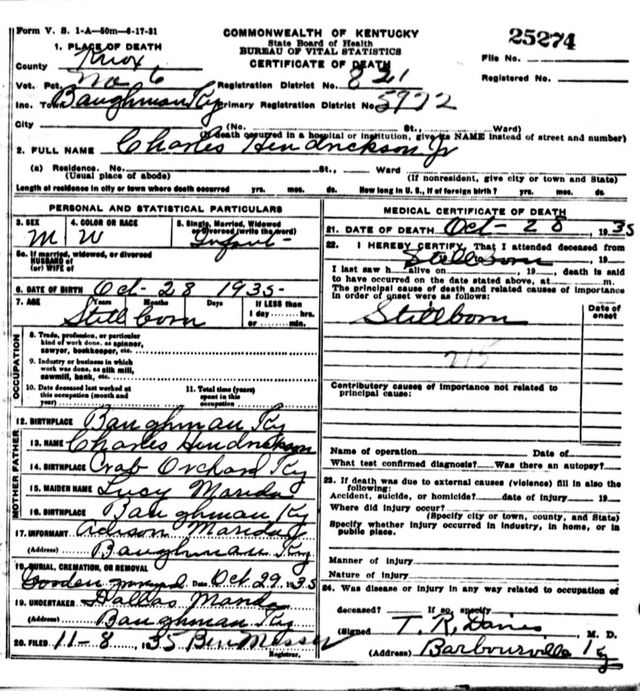 Form V. S. 1-A—50m—6-17-31
COMMONWEALTH OF KENTUCKY
State Board of Health
BUREAU OF VITAL STATISTICS
CERTIFICATE OF DEATH
25274
File No.
Registered No.
1. PLACE OF DEATH
County Knox
Vot. Pct. No 6 Registration District No. 821
Inc. To Baughman Ky Primary Registration District No. 5972
City (No. St., Ward)
(If death occurred in a hospital or institution, give its NAME instead of street and number)
2. FULL NAME Charles Hendrickson Jr
(a) Residence. No. St., Ward
(Usual place of abode) (If nonresident, give city or town and State)
Length of residence in city or town where death occurred yrs. mos. ds. How long in U. S., if of foreign birth? yrs. mos. ds.
PERSONAL AND STATISTICAL PARTICULARS
3. SEX 4. COLOR OR RACE 5. Single, Married, Widowed or Divorced (write the word)
M W Infant-
5a. If married, widowed, or divorced
HUSBAND of
(or) WIFE of
6. DATE OF BIRTH Oct-28 1935-
7. AGE Years Months Days If LESS than
1 day hrs.
or min.
Stillborn
OCCUPATION
8. Trade, profession, or particular
kind of work done, as spinner,
sawyer, bookkeeper, etc.
9. Industry or business in which
work was done, as silk mill,
sawmill, bank, etc.
10. Date deceased last worked at
this occupation (month and
year)
11. Total time (years)
spent in this
occupation
12. BIRTHPLACE Baughman Ky
MOTHER FATHER
13. NAME Charles Hendrickson
14. BIRTHPLACE Crab Orchard Ky
15. MAIDEN NAME Lucy
16. BIRTHPLACE Baughman Ky
17. INFORMANT
(Address) Baughman Ky
18. BURIAL, CREMATION, OR REMOVAL
Date Oct 29 1935
19. UNDERTAKER Dallas
(Address) Baughman Ky
20. FILED 11-8, 1935 Ben Messer
Registrar.
MEDICAL CERTIFICATE OF DEATH
21. DATE OF DEATH Oct-28, 1935
22. I HEREBY CERTIFY, That I attended deceased from
Stillborn 19
I last saw h alive on , 19 , death is said
to have occurred on the date stated above, at m.
The principal cause of death and related causes of importance
in order of onset were as follows:
Date of
onset
Stillborn
215
Contributory causes of importance not related to
principal cause:
Name of operation Date of
What test confirmed diagnosis? Was there an autopsy?
23. If death was due to external causes (violence) fill in also the
following:
Accident, suicide, or homicide? date of injury 19
Where did injury occur?
(Specify city or town, county, and State)
Specify whether injury occurred in industry, in home, or in
public place.
Manner of injury
Nature of injury
24. Was disease or injury in any way related to occupation of
deceased? If so, specify
(Signed T. R. Davis M. D.
(Address) Barbourville Ky